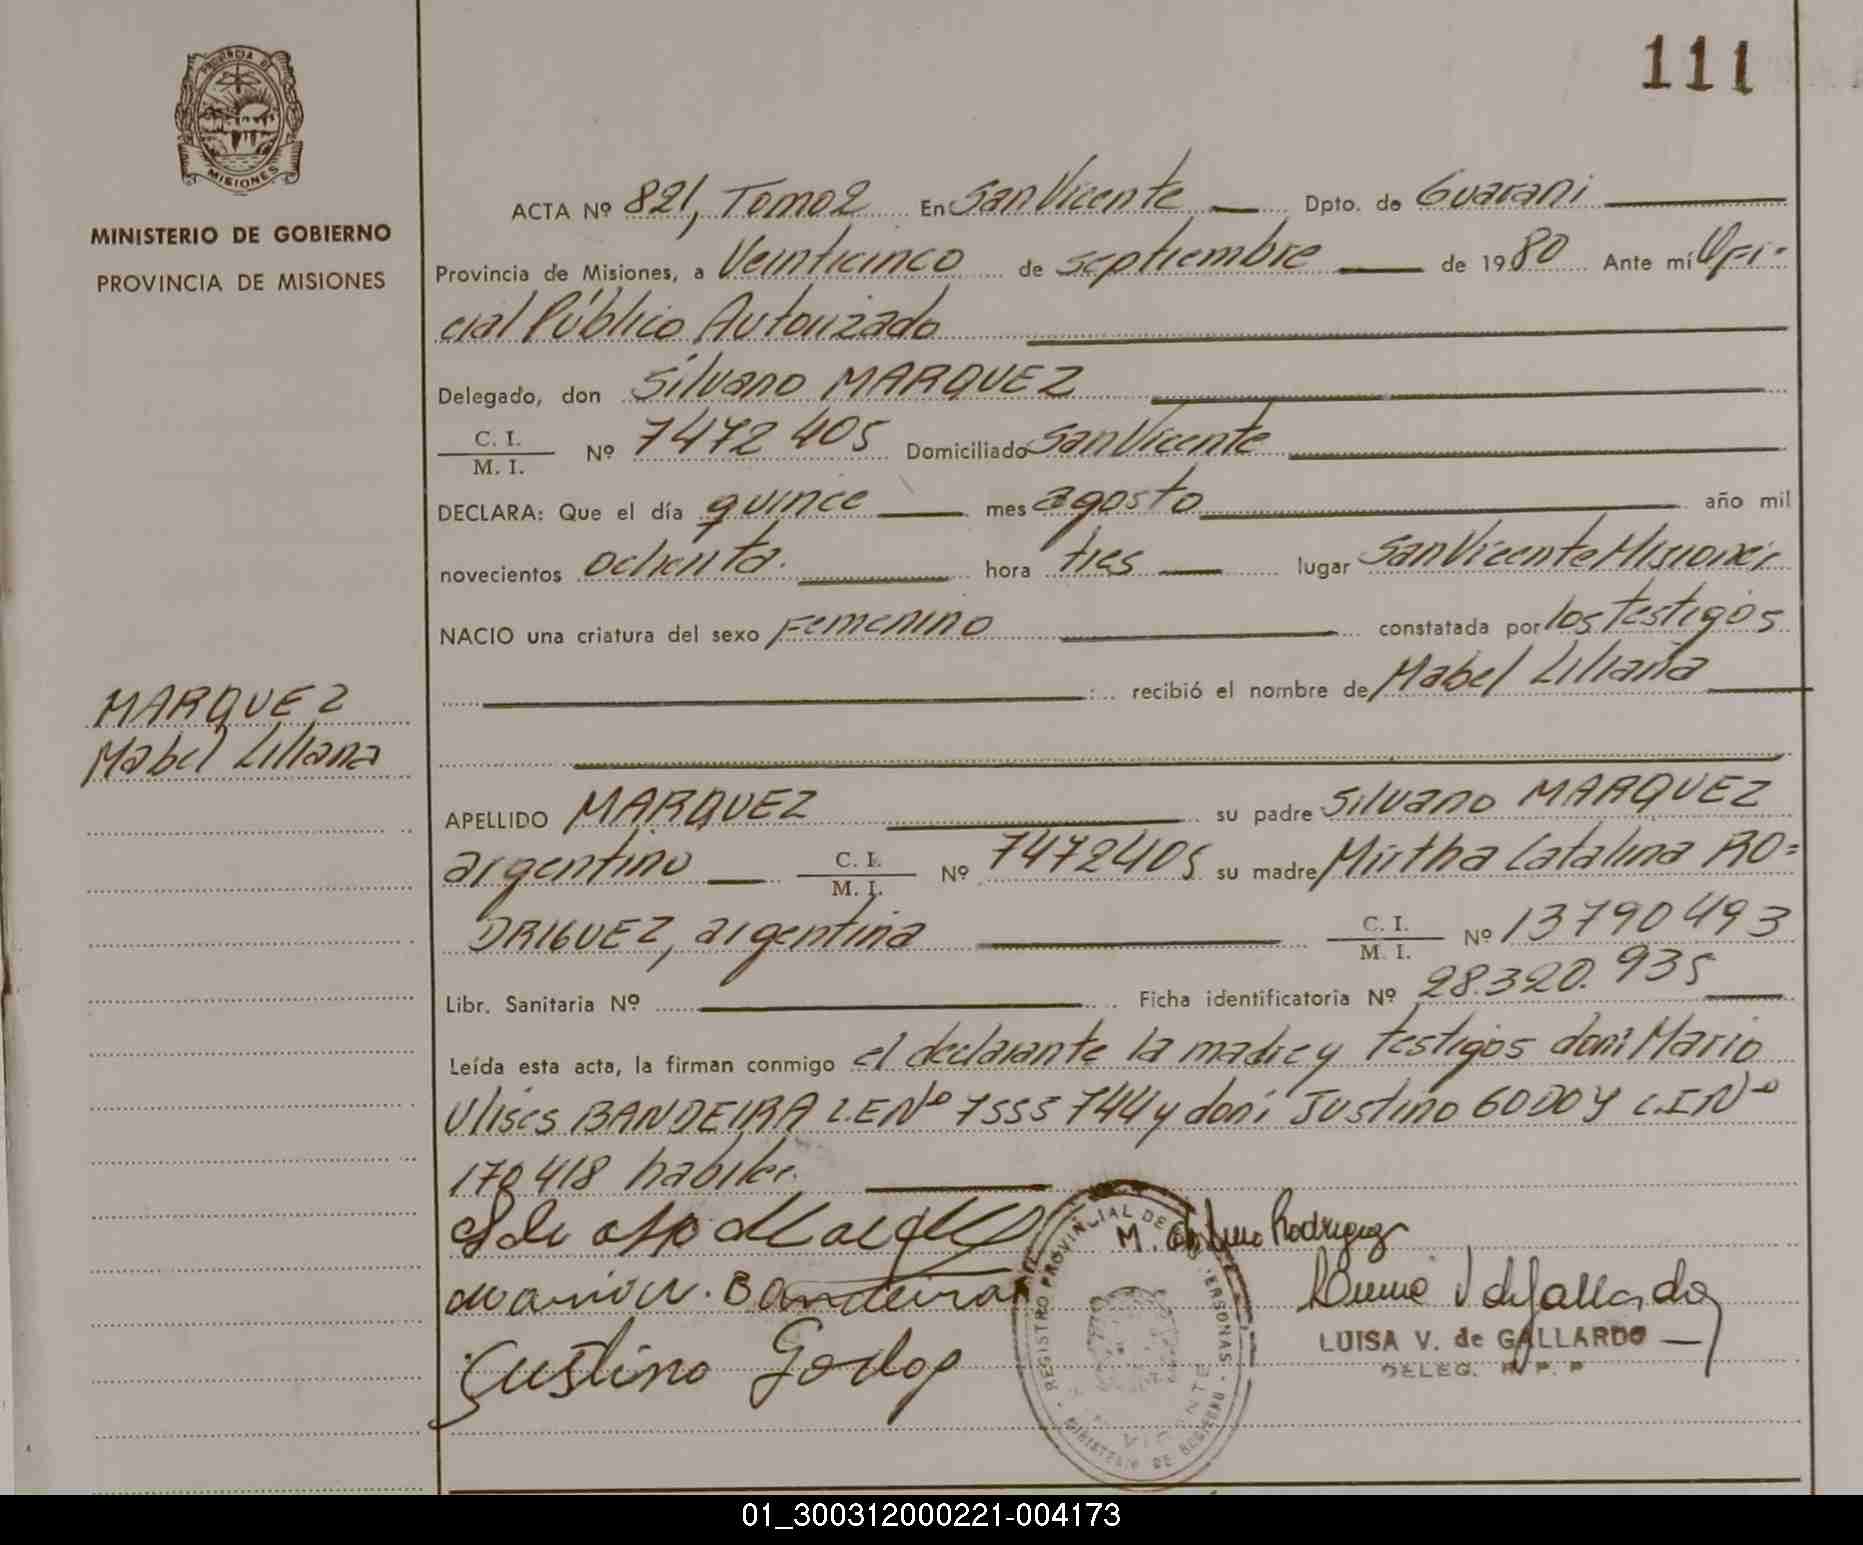 111
PROVINCIA DE
MISIONES
MINISTERIO DE GOBIERNO
PROVINCIA DE MISIONES
MARQUEZ
Mabel Liliana
ACTA Nº 821, Tomo 2 En San Vicente Dpto. de Guarani
Provincia de Misiones, a Veinticinco de septiembre de 1980 Ante mí Ofi-
cial Público Autorizado
Delegado, don Silvano MARQUEZ
C. I.
M. I. Nº 7472405 Domiciliado San Vicente
DECLARA: Que el día quince mes agosto año mil
novecientos ochenta. hora tres lugar San Vicente Misiones
NACIO una criatura del sexo Femenino constatada por los testigos
recibió el nombre de Mabel Liliana
APELLIDO MARQUEZ su padre Silvano MARQUEZ
argentino C. I. M. I. Nº 7472405 su madre Mirtha Catalina RO=
DRIGUEZ, argentina C. I. M. I. Nº 13790493
Libr. Sanitaria Nº Ficha identificatoria Nº 28.320.935
Leída esta acta, la firman conmigo el declarante la madre y testigos don: Mario
Ulises BANDEIRA L.E Nº 7555744 y don: Justino GODOY C.I Nº
170418 habiles.
Rodriguez
Bandeira
Justino Godoy
LUISA V. de GALLARDO
DELEG. R. P. P
REGISTRO PROVINCIAL DE LAS PERSONAS
MINISTERIO DE GOBIERNO
01_300312000221-004173